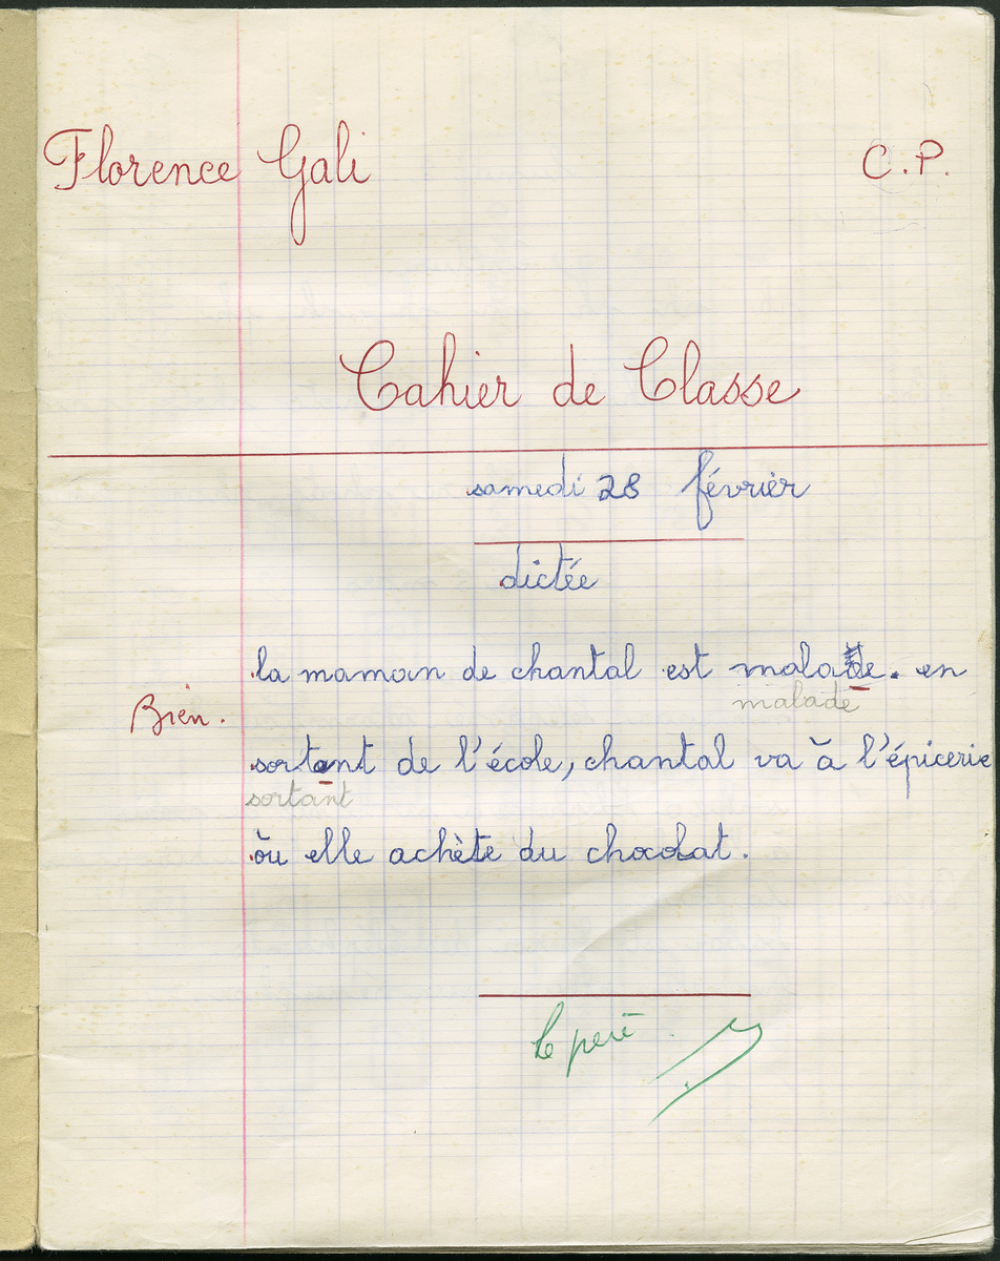 Florence Gali C.P.
Cahier de Classe
samedi 28 février
dictée
la maman de chantal est malade. en
malade
Bien.
sortant de l'école, chantal va à l'épicerie
sortant
où elle achète du chocolat.
le père